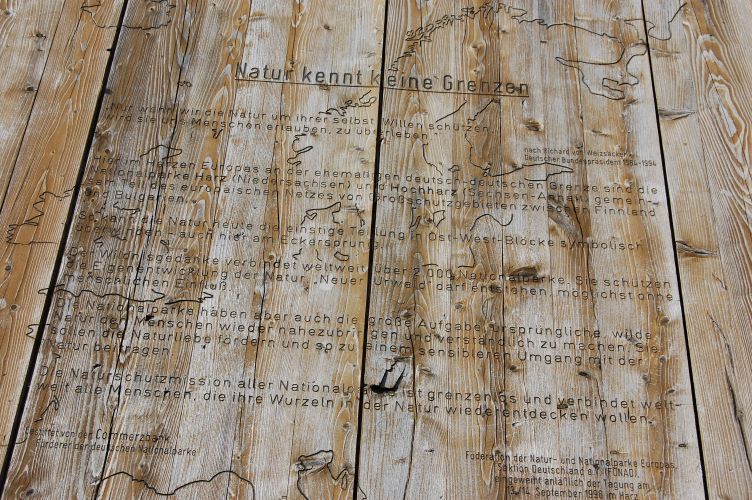 Natur kennt keine Grenzen
"Nur wenn wir die Natur um ihrer selbst Willen schützen,
wird sie uns Menschen erlauben, zu überleben."
nach Richard von Weizsäcker
Deutscher Bundespräsident 1984-1994
Hier im Herzen Europas an der ehemaligen deutsch-deutschen Grenze sind die
Nationalparke Harz (Niedersachsen) und Hochharz (Sachsen-Anhalt) gemein-
sam Teil des europäischen Netzes von Großschutzgebieten zwischen Finnland
und Bulgarien.
So kann die Natur heute die einstige Teilung in Ost-West-Blöcke symbolisch
- auch hier am Eckersprung.
Der Wildnisgedanke verbindet weltweit über 2.000 Nationalparke. Sie schützen
die Eigenentwicklung der Natur. "Neuer Urwald" darf entstehen, möglichst ohne
menschlichen Einfluß.
Die Nationalparke haben aber auch die große Aufgabe, ursprüngliche, wilde
Natur den Menschen wieder nahezubringen und verständlich zu machen. Sie
sollen die Naturliebe fördern und so zu einem sensibleren Umgang mit der
Natur beitragen.
Die Naturschutzmission aller Nationalparke ist grenzenlos und verbindet welt-
weit alle Menschen, die ihre Wurzeln in der Natur wiederentdecken wollen.
Gestiftet von der Commerzbank
Förderer der deutschen Nationalparke
Föderation der Natur- und Nationalparke Europas
Sektion Deutschland e.V. (FÖNAD),
eingeweiht anläßlich der Tagung am
14. September 1998 im Harz